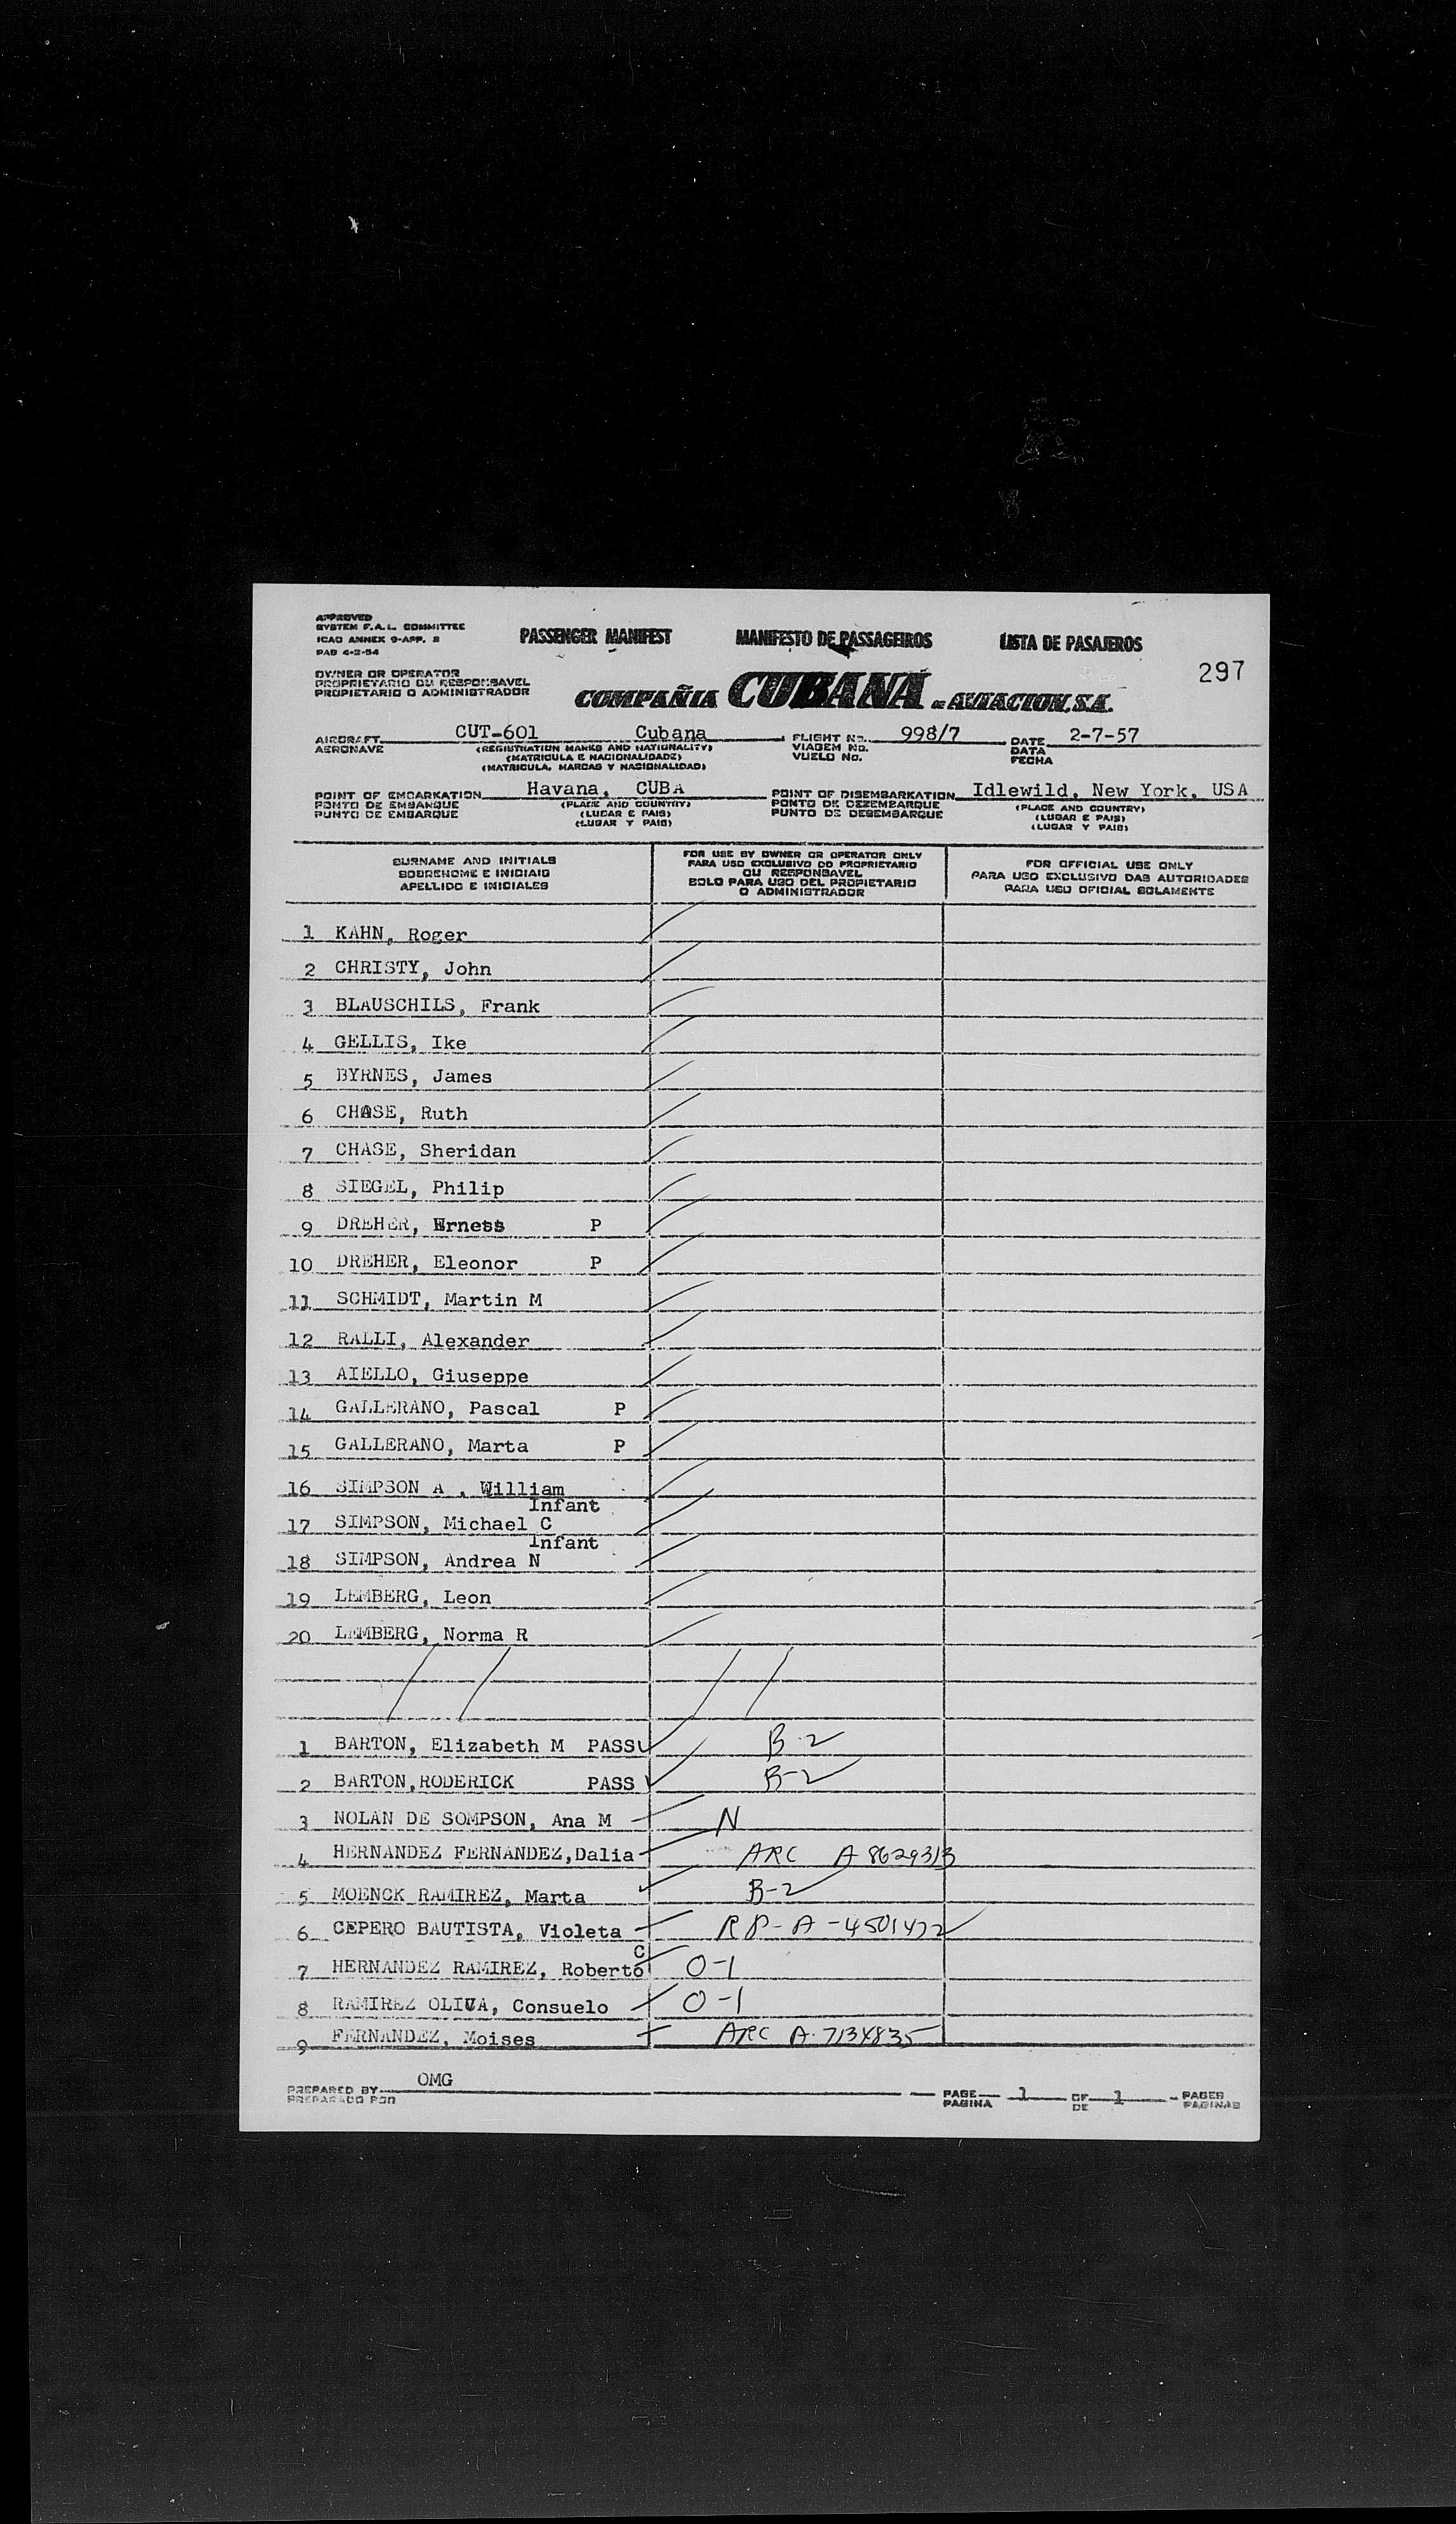 APPROVED
SYSTEM F.A.L. COMMITTEE
ICAO ANNEX 9-APP. 2
PAB 4-2-54
PASSENGER MANIFEST MANIFESTO DE PASSAGEIROS LISTA DE PASAJEROS
297
OWNER OR OPERATOR
PROPRIETARIO OU RESPONSAVEL
PROPIETARIO O ADMINISTRADOR
COMPAÑIA CUBANA DE AVIACION, S.A.
AIRCRAFT CUT-601 Cubana FLIGHT No. 998/7 DATE 2-7-57
AERONAVE (REGISTRATION MARKS AND NATIONALITY) VIAGEM No. DATA
(MATRICULA E NACIONALIDADE) VUELO No. FECHA
(MATRICULA, MARCAS Y NACIONALIDAD)
POINT OF EMBARKATION Havana, CUBA POINT OF DISEMBARKATION Idlewild, New York, USA
PONTO DE EMBARQUE (PLACE AND COUNTRY) PONTO DE DEZEMBARQUE (PLACE AND COUNTRY)
PUNTO DE EMBARQUE (LUGAR E PAIS) PUNTO DE DESEMBARQUE (LUGAR E PAIS)
(LUGAR Y PAIS) (LUGAR Y PAIS)
SURNAME AND INITIALS
SOBRENOME E INICIAIS
APELLIDO E INICIALES
FOR USE BY OWNER OR OPERATOR ONLY
PARA USO EXCLUSIVO DO PROPRIETARIO
OU RESPONSAVEL
SOLO PARA USO DEL PROPIETARIO
O ADMINISTRADOR
FOR OFFICIAL USE ONLY
PARA USO EXCLUSIVO DAS AUTORIDADES
PARA USO OFICIAL SOLAMENTE
1 KAHN, Roger
2 CHRISTY, John
3 BLAUSCHILS, Frank
4 GELLIS, Ike
5 BYRNES, James
6 CHASE, Ruth
7 CHASE, Sheridan
8 SIEGEL, Philip
9 DREHER, Erness P
10 DREHER, Eleonor P
11 SCHMIDT, Martin M
12 RALLI, Alexander
13 AIELLO, Giuseppe
14 GALLERANO, Pascal P
15 GALLERANO, Marta P
16 SIMPSON A , William
Infant
17 SIMPSON, Michael C
Infant
18 SIMPSON, Andrea N
19 LEMBERG, Leon
20 LEMBERG, Norma R
1 BARTON, Elizabeth M PASS B-2
2 BARTON,RODERICK PASS B-2
3 NOLAN DE SOMPSON, Ana M N
4 HERNANDEZ FERNANDEZ,Dalia ARC A 8629313
5 MOENCK RAMIREZ, Marta B-2
6 CEPERO BAUTISTA, Violeta RP-A-4501472
C
7 HERNANDEZ RAMIREZ, Roberto O-1
8 RAMIREZ OLIVA, Consuelo O-1
9 FERNANDEZ, Moises ARC A-7134835
PREPARED BY OMG PAGE 1 OF 1 PAGES
PREPARADO POR PAGINA DE PAGINAS